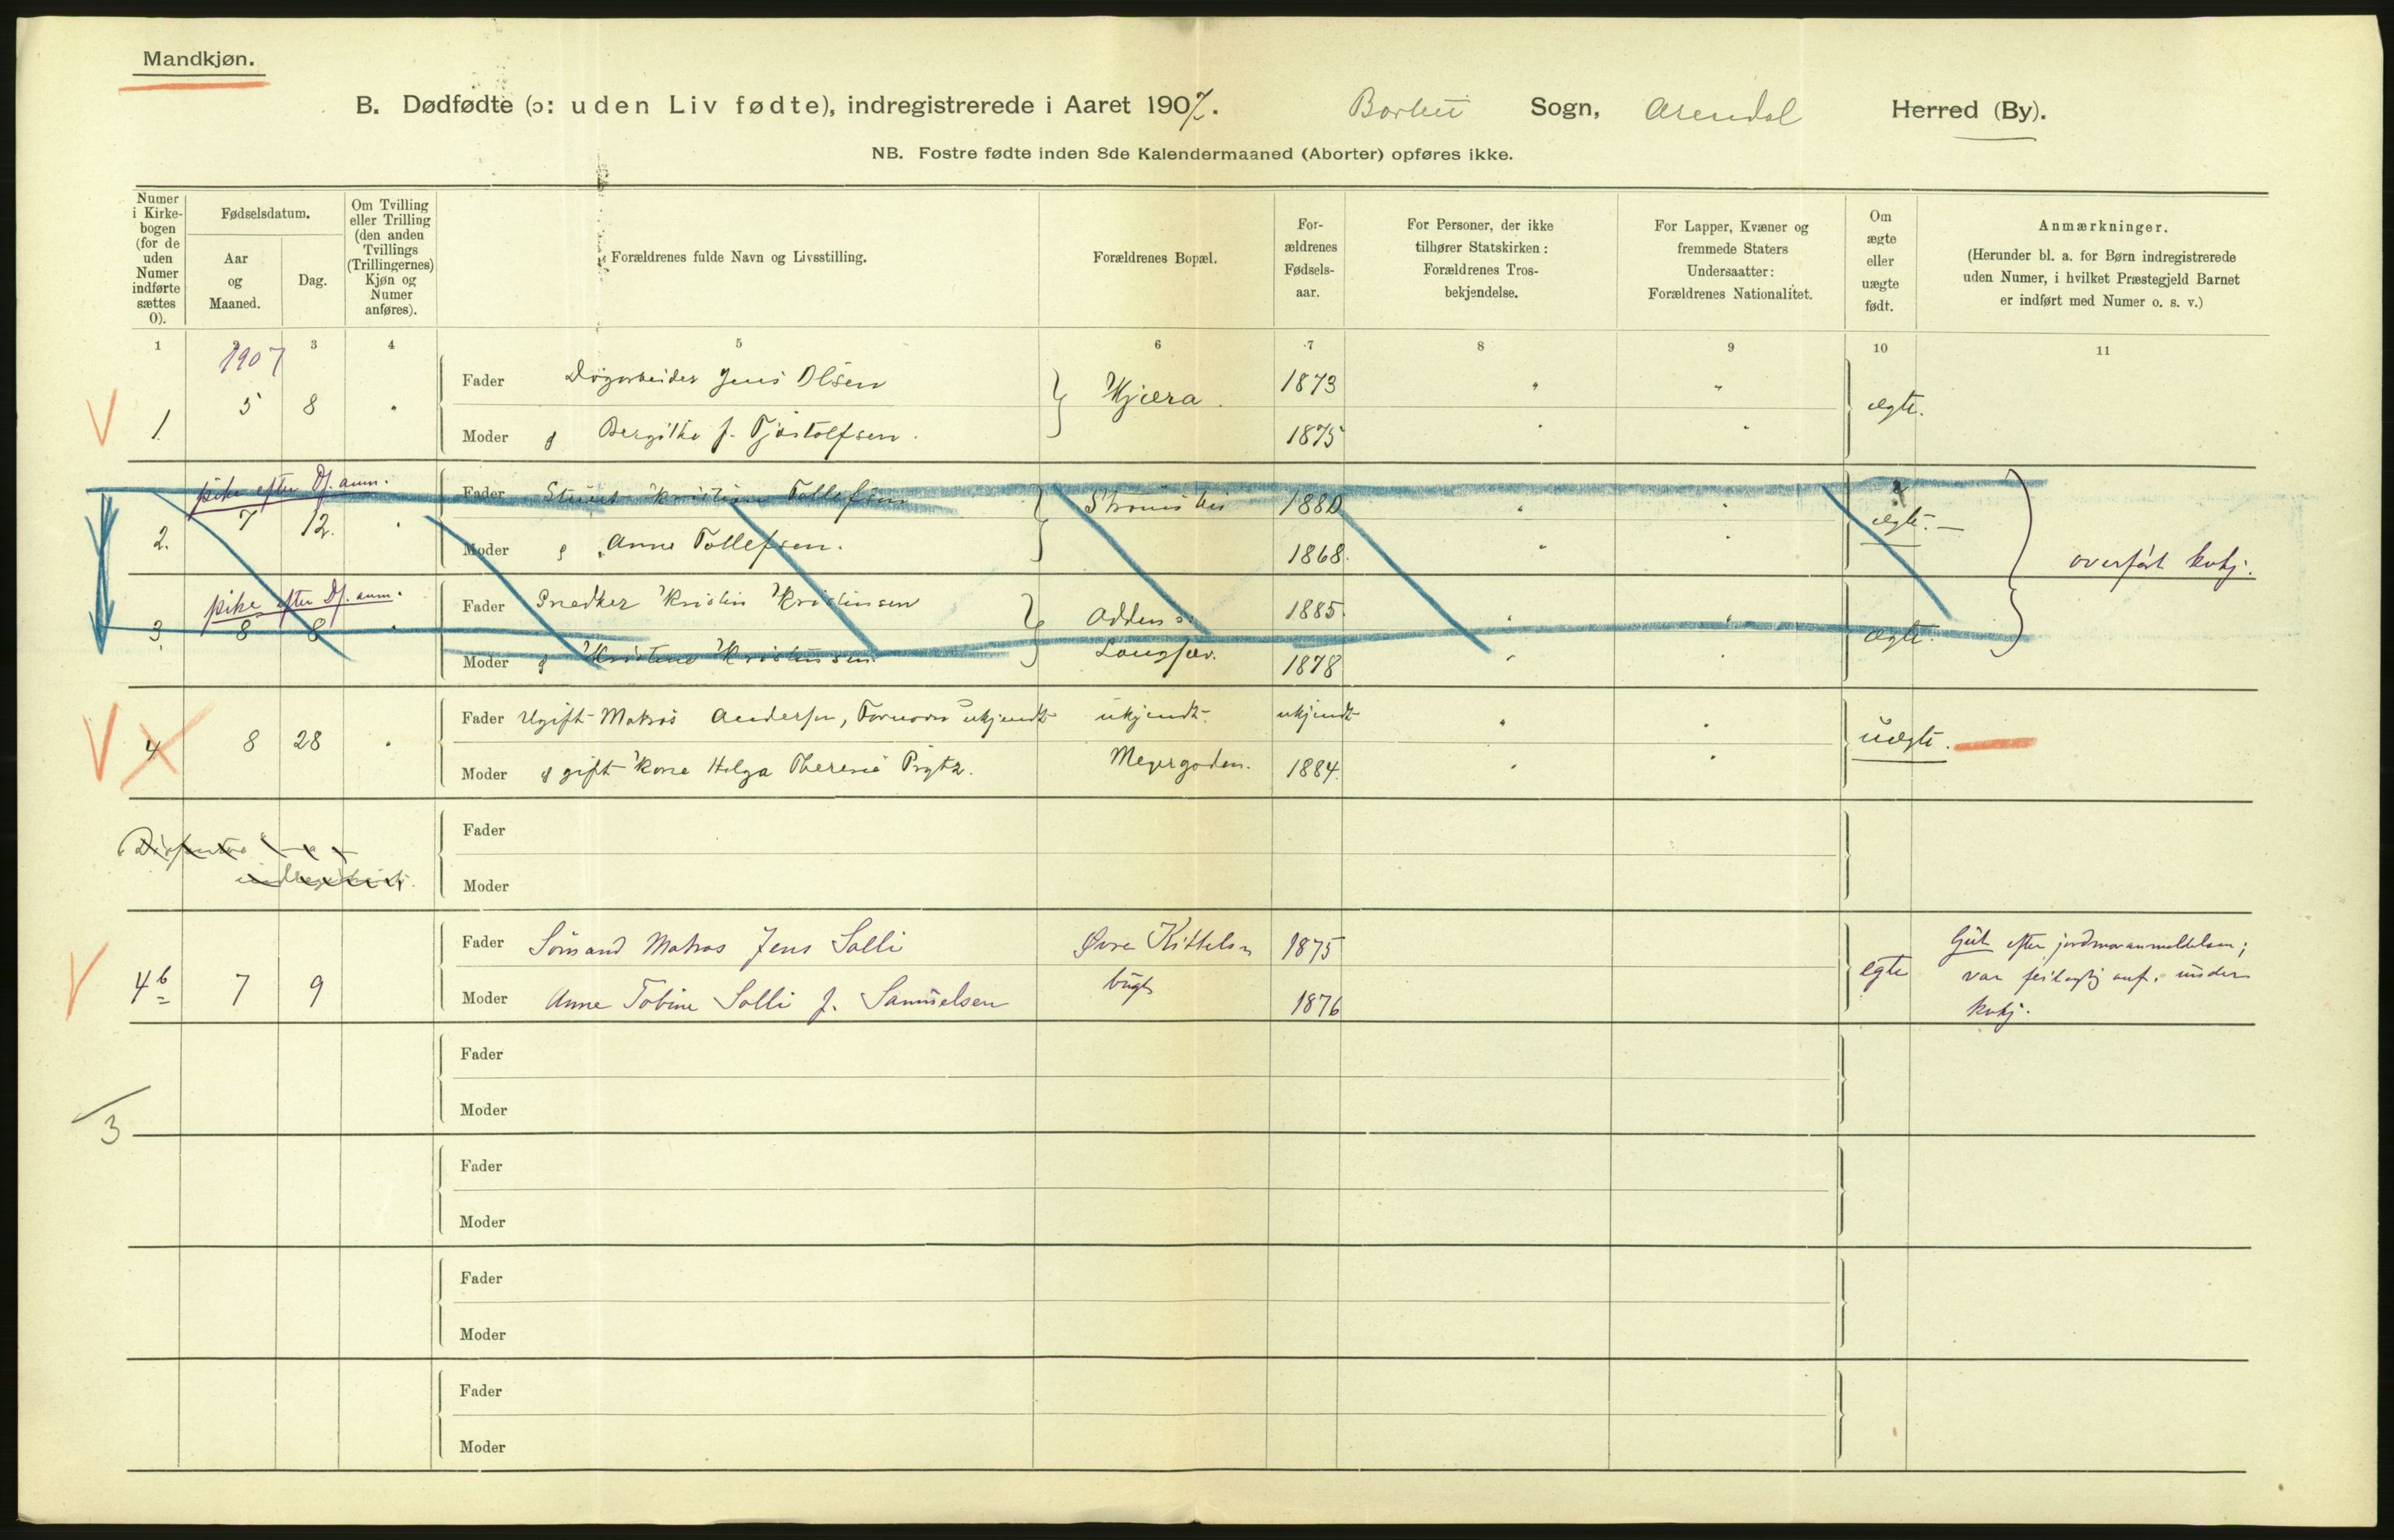 Mandkjøn.
B. Dødfødte (ɔ: uden Liv fødte), indregistrerede i Aaret 1907. Barbu Sogn, Arendal Herred (By).
NB. Fostre fødte inden 8de Kalendermaaned (Aborter) opføres ikke.
Numer i Kirke-bogen (for de uden Numer indførte sættes 0).
Fødselsdatum.
Aar og Maaned.
Dag.
Om Tvilling eller Trilling (den anden Tvillings (Trillingernes) Kjøn og Numer anføres).
Forældrenes fulde Navn og Livsstilling.
Forældrenes Bopæl.
For-ældrenes Fødsels-aar.
For Personer, der ikke tilhører Statskirken: Forældrenes Tros-bekjendelse.
For Lapper, Kvæner og fremmede Staters Undersaatter: Forældrenes Nationalitet.
Om ægte eller uægte født.
Anmærkninger.
(Herunder bl. a. for Børn indregistrerede uden Numer, i hvilket Præstegjeld Barnet er indført med Numer o. s. v.)
1 3 4 5 6 7 8 9 10 11
1907
Fader Jens Olsen 1873
1. 5 8 " Kjærra ægte.
Moder Bergithe f. Tjøstolfsen. 1875
pike efter Dj. anm.
Fader Kristian Tollefsen 1880
2. 7 12. " ægte.
Moder Anne Tollefsen. 1868.
overført kvkj.
pike efter Dj. anm.
Fader Snedker Kristin Kristinsen 1885
3. 8 8 " ægte.
Moder 1878
Fader Ugift Matros Andersen, Fornavn ukjendt ukjendt. ukjendt
4 8 28 " uægte.
Moder gift Kone Helga Therese Prytz. 1884.
Fader
Moder
Fader Sömand Matros Jens Solli Øvre Kittels 1875
4b 7 9 bugt egte
Moder Anne Tobine Solli f. Samuelsen 1876
Gut efter jordmoranmeldelsen;
var feilagtig anf. under
kvkj.
Fader
Moder
3
Fader
Moder
Fader
Moder
Fader
Moder